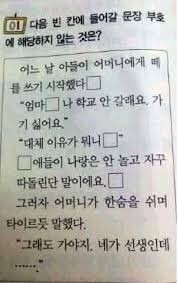 01 다음 빈 칸에 들어갈 문장 부호
에 해당하지 않는 것은?
어느 날 아들이 어머니에게 떼
를 쓰기 시작했다□
"엄마□ 나 학교 안 갈래요. 가
기 싫어요."
"대체 이유가 뭐니□"
□애들이 나랑은 안 놀고 자꾸
따돌린단 말이에요.□
그러자 어머니가 한숨을 쉬며
타이르듯 말했다.
"그래도 가야지. 네가 선생인데
……."